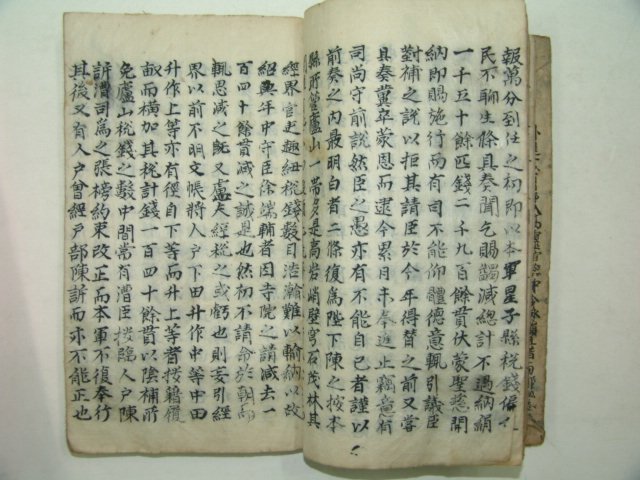 報萬分到任之初即以本軍星子縣税錢偏重
民不聊生條具奏聞乞賜蠲減總計不過納絹
一千五十餘匹錢二千九百餘貫伏蒙聖慈開
納即賜施行而有司不能仰體德意輒引議臣
對補之說以拒其請臣於今年得替之前又嘗
具奏冀卒蒙恩而逮今累月未奉進止竊意有
司尚守前說然臣之愚亦有不能自已者謹以
前奏之内最明白者二條復爲陛下陳之按本
縣所管廬山一帶多是高岩峭壁穹石茂林其
經界官吏趣紐税錢數目浩瀚難以輸納以故
紹興年中守臣徐端輔者因寺院之請減去一
百四十餘貫減之誠是也然初不請命於朝而
輒恩減之既又慮夫經税之或虧也則妄引經
界以前不明文帳將人户下田升作中等中田
升作上等亦有徑自下等而升上等者按籍履
畝而横加其税計錢一百四十餘貫以陰補所
免廬山税錢之數中間嘗有漕臣按臨人户陳
訴漕司爲之張榜約束改正而本軍不復奉行
其後又有人户曾經户部陳訴而亦不能正也